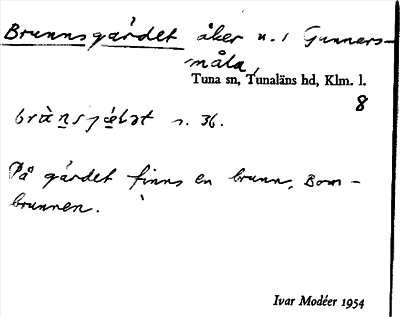 Brunnsgärdet åker n. i Gunnars-
måla,
Tuna sn, Tunaläns hd, Klm. l.
8
s. 36.
På gärdet finns en brunn, Bom-
brunnen.
Ivar Modéer 1954